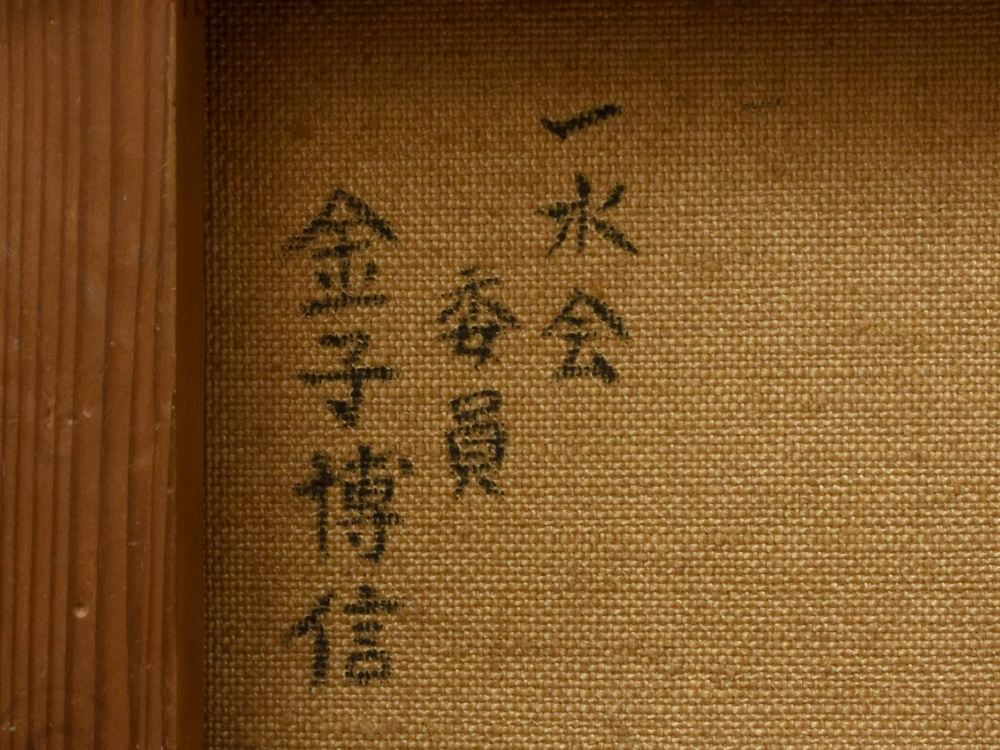 一水会
委員
金子博信